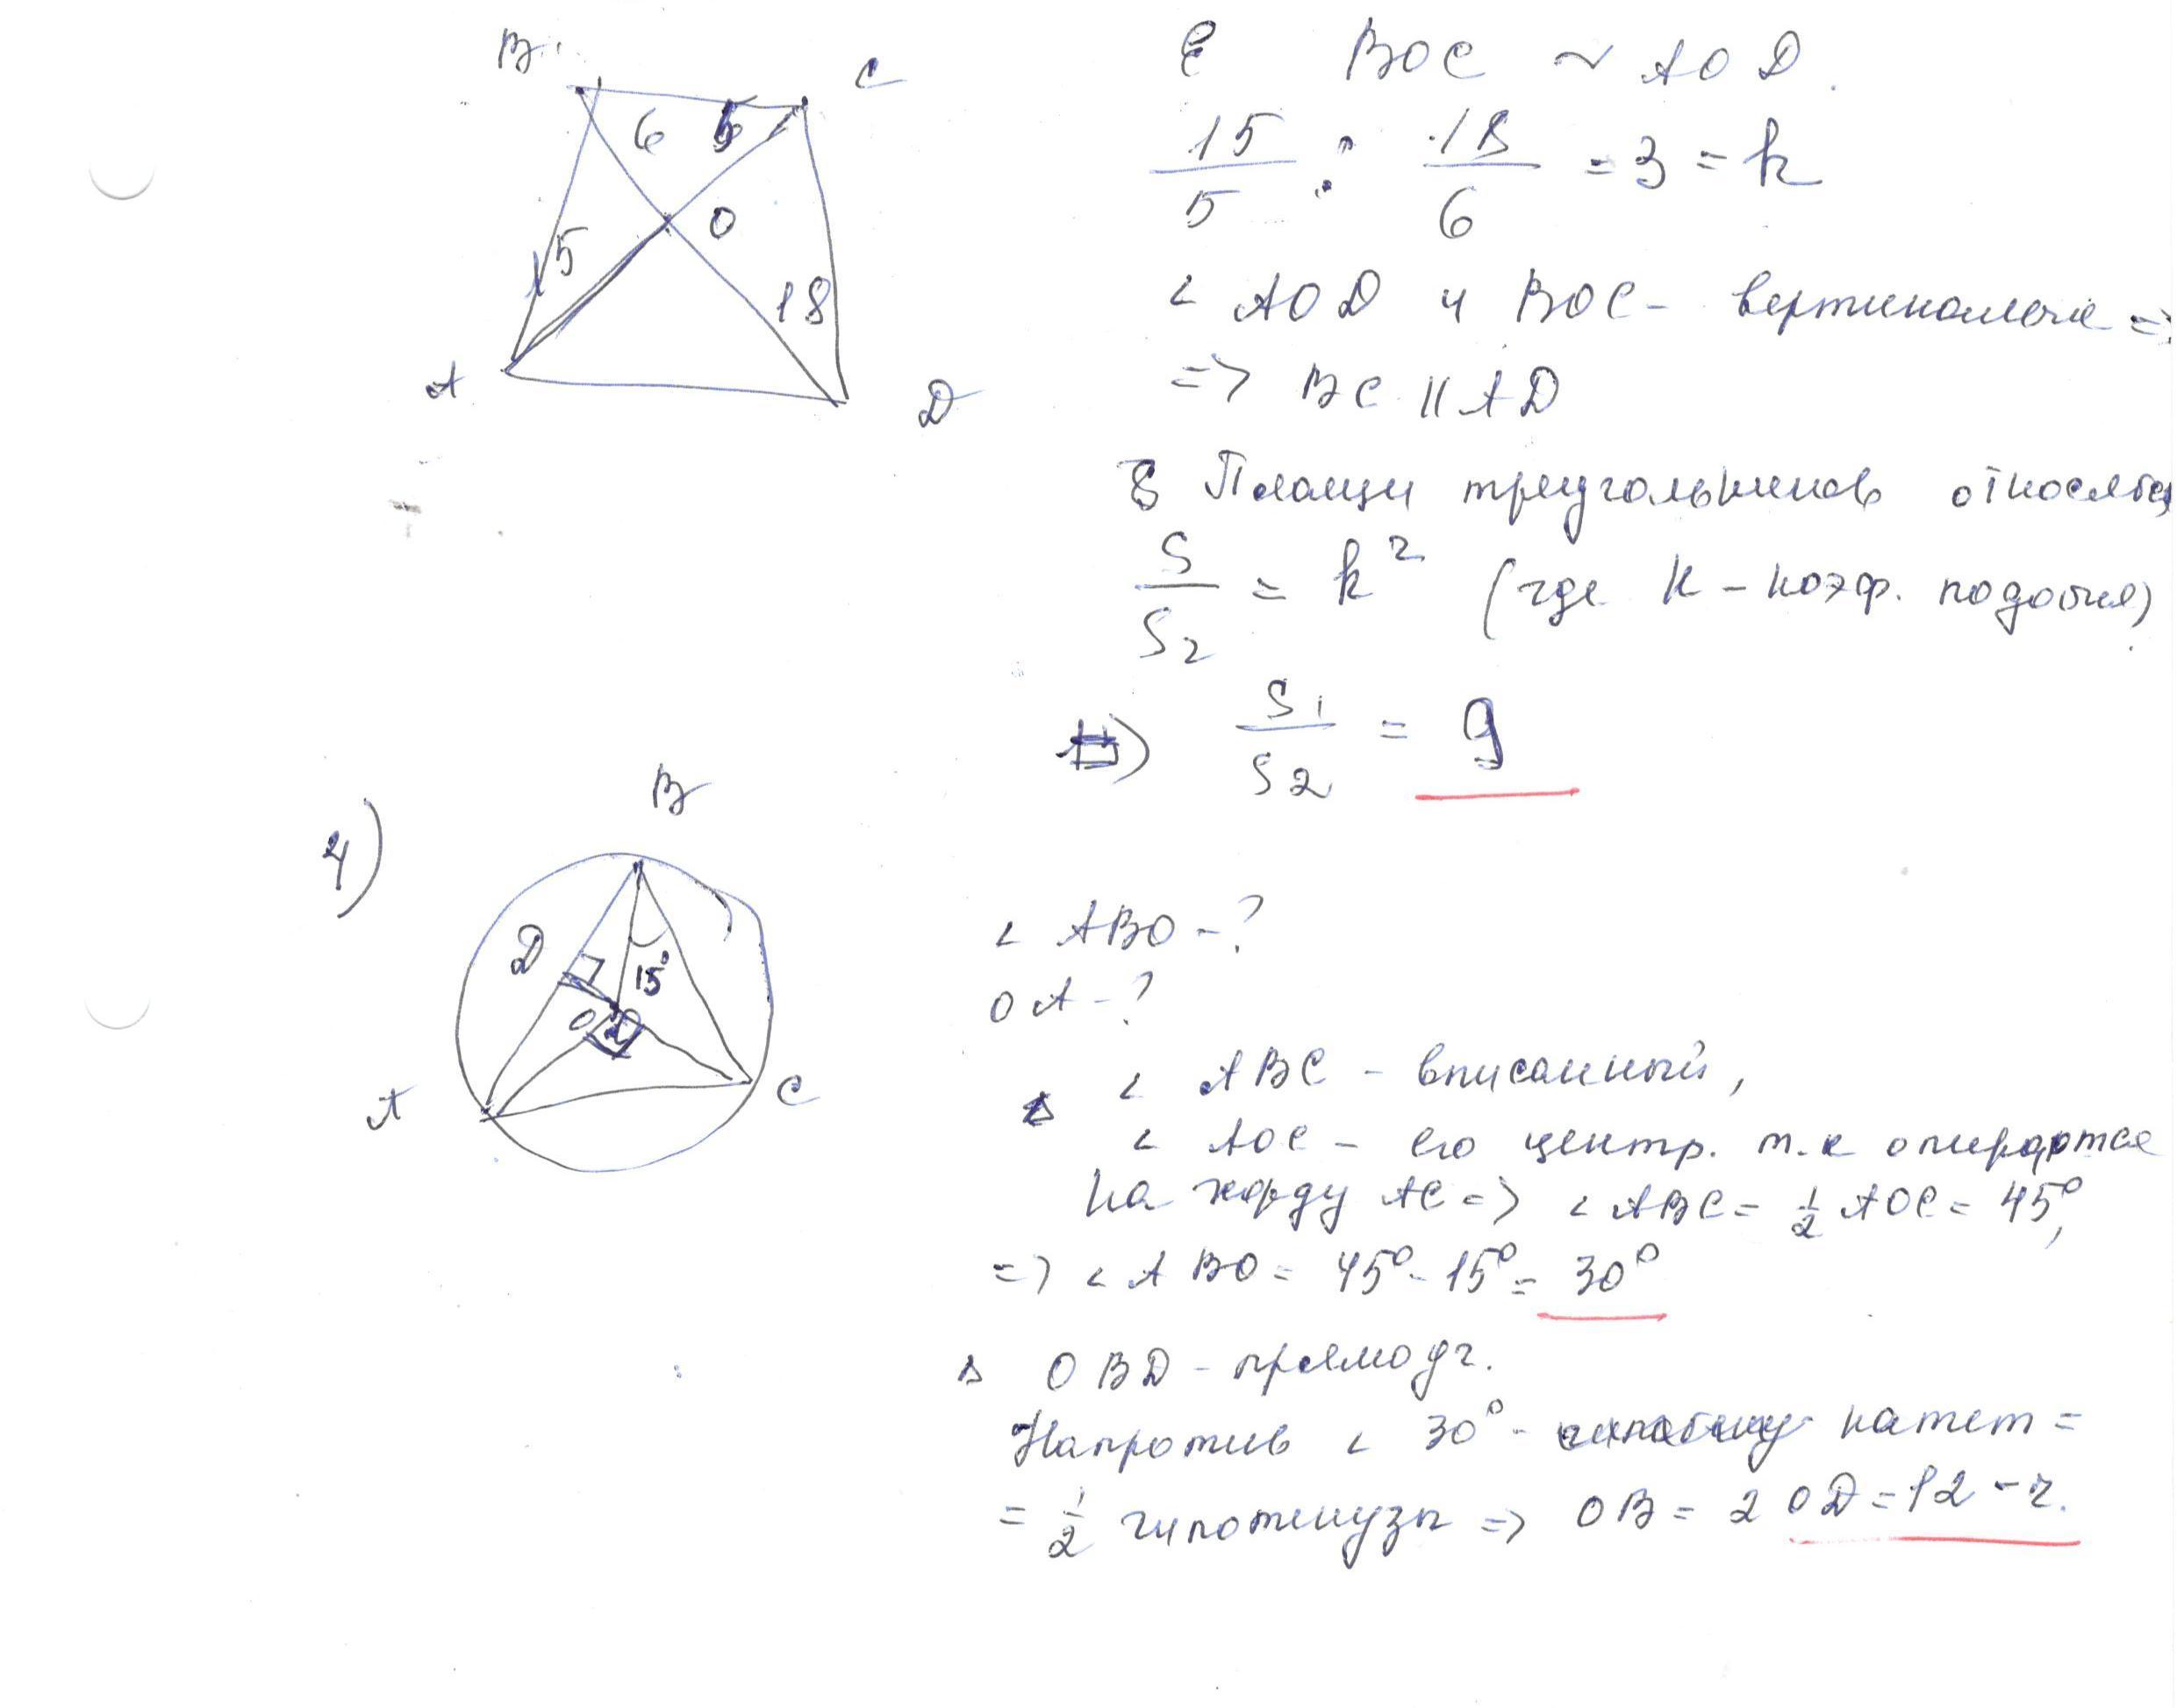 B
C
6 5
O
15
18
A
D
BOC ~ AOD.
15/5 : 18/6 = 3 = k
∠ AOD и BOC - вертикальные =>
=> BC || AD
Площи треугольников относятся
S/S2 = k² (где k - коэф. подобия)
S1/S2 = 9
4)
B
D
15°
O
A
C
∠ ABO - ?
OA - ?
∠ ABC - вписанный,
∠ AOC - его центр. т.к опираются
на хорду AC => ∠ ABC = 1/2 AOC = 45°,
=> ∠ ABO = 45° - 15° = 30°
Δ OBD - прямоуг.
Напротив ∠ 30° - катет =
= 1/2 гипотенузы => OB = 2 OD = 12 - r.